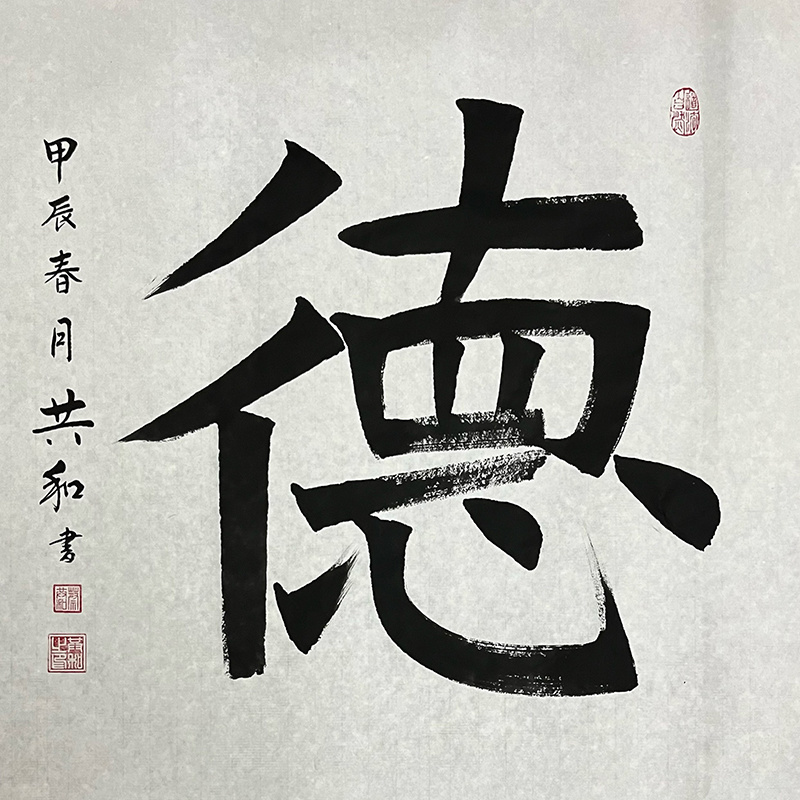 德
甲辰春月共和书